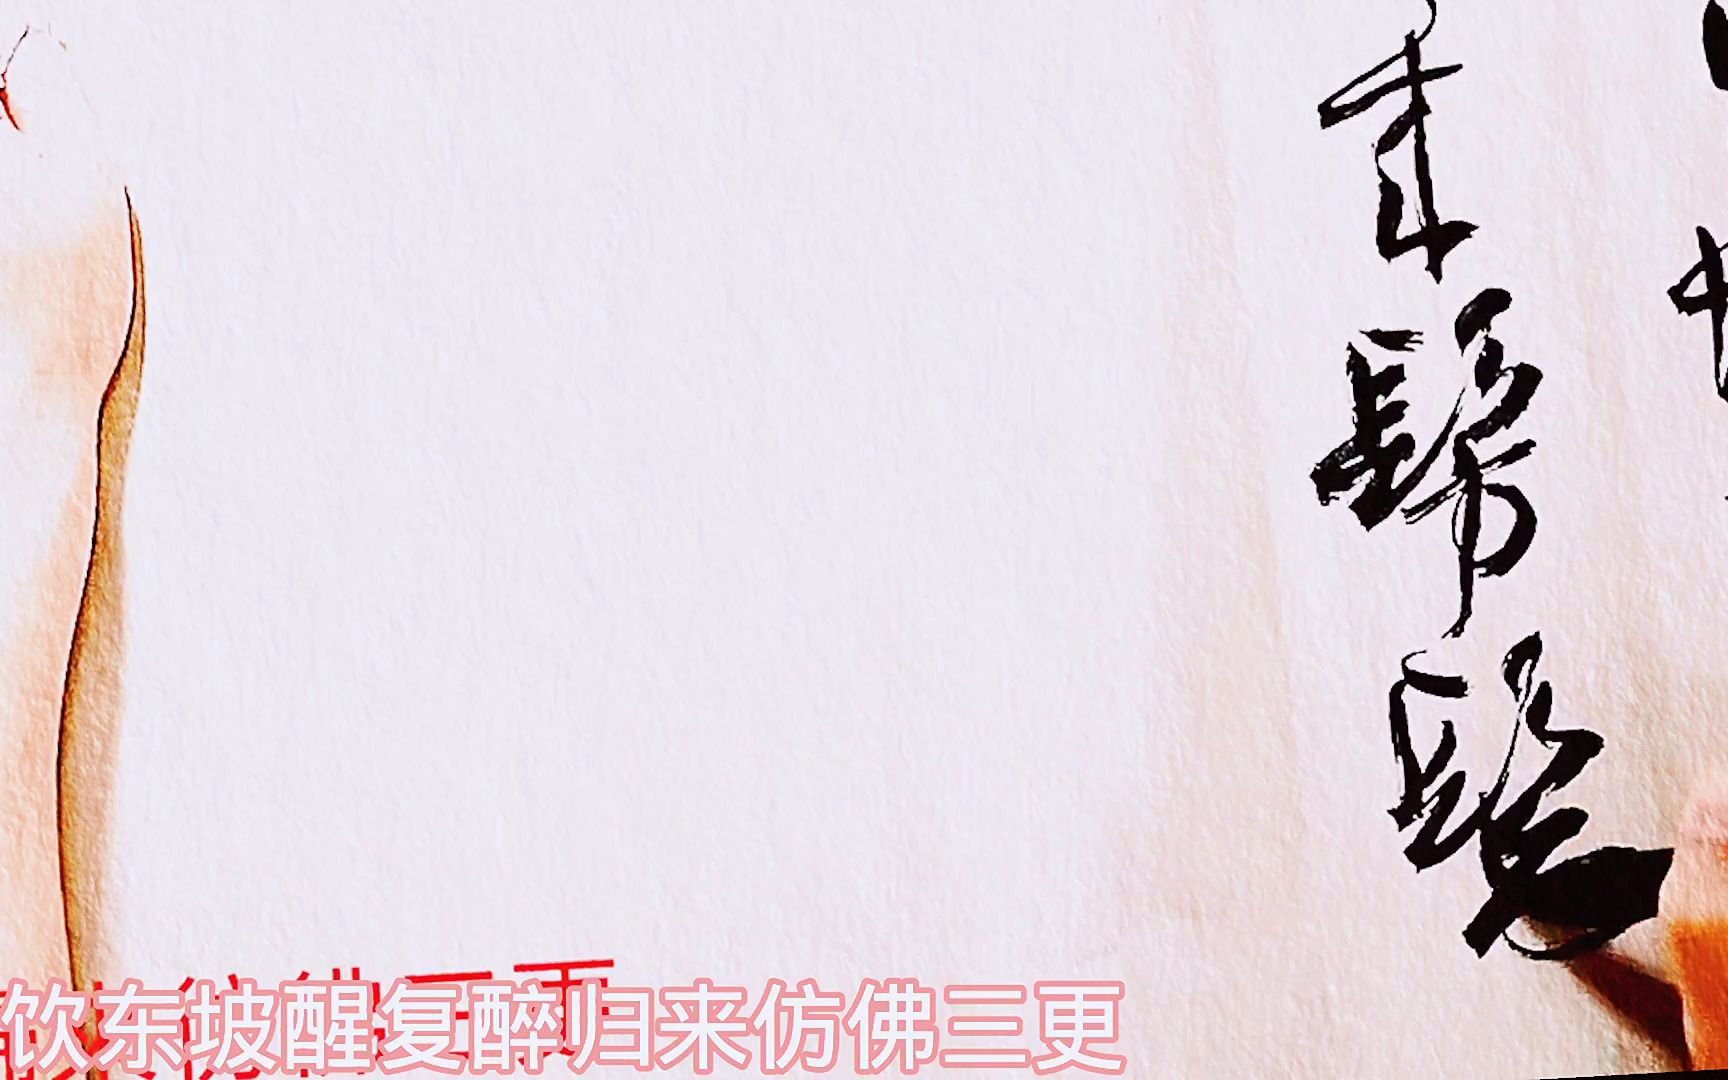 来髣髴
饮东坡醒复醉归来仿佛三更